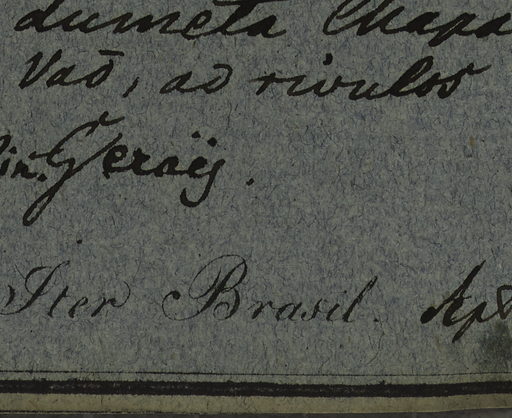 dumeta Chapa
Vaō, ad rivulos
in. Geraës.
Iter Brasil. Ap